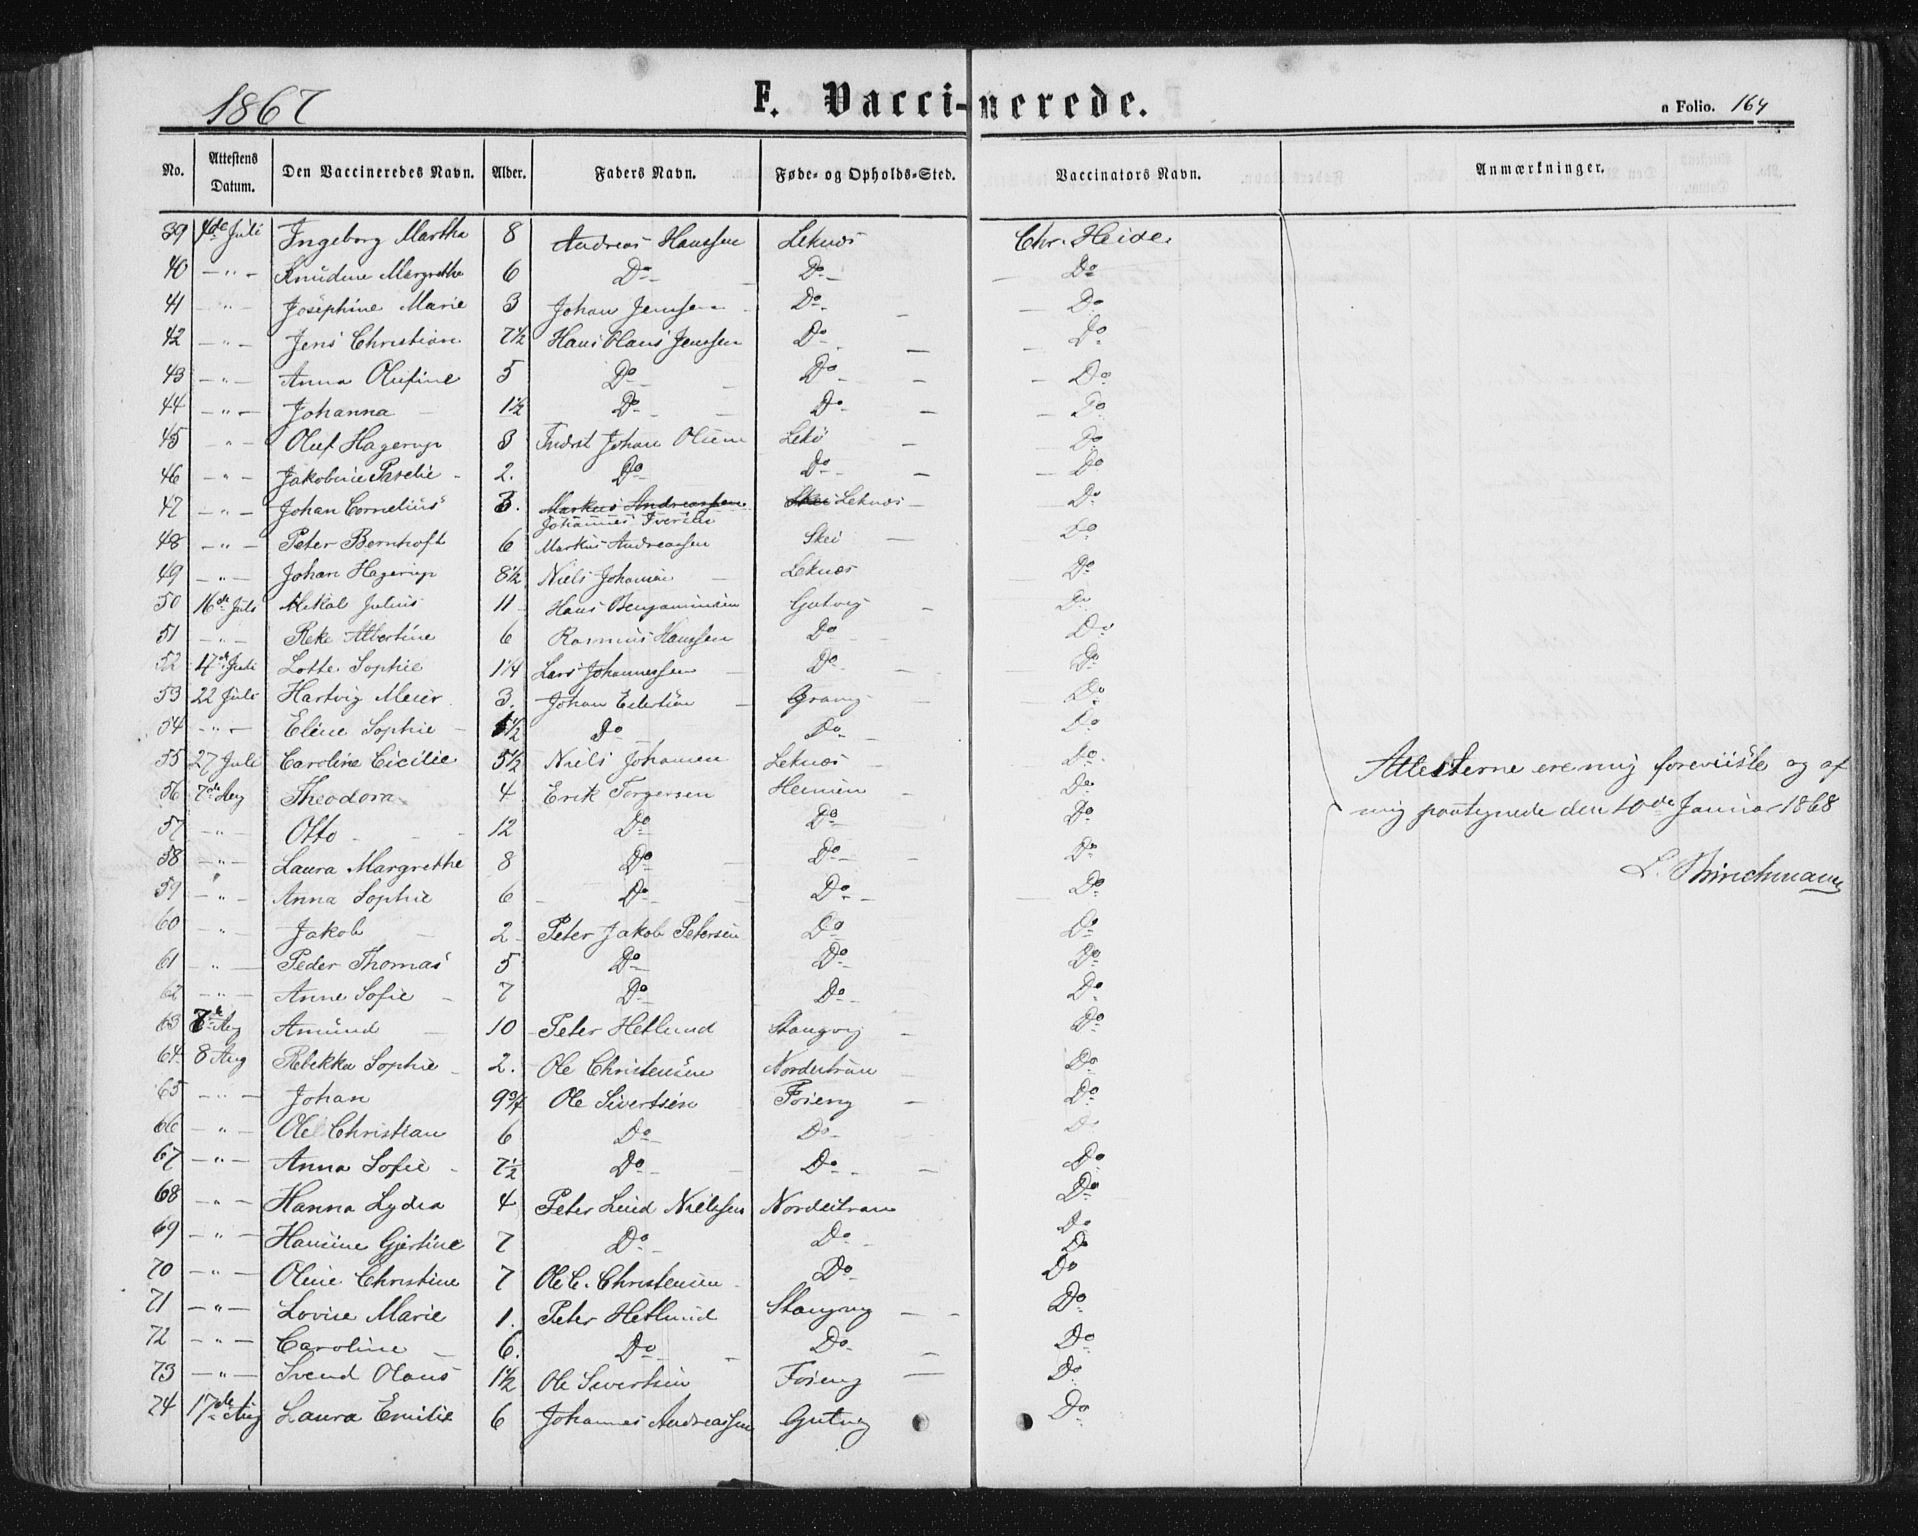 1867 F. Vaccinerede. a Folio. 164
No. Attestens Datum. Den Vaccineredes Navn. Alder. Faders Navn. Føde- og Opholds-Sted. Vaccinators Navn. Anmærkninger.
39 4de Juli Ingeborg Martha 8 Andreas Hanssen Leknæs Chr. Heide.
40 — " — Knudine Margrethe 6 Do Do Do
41 " Josephine Marie 3 Johan Jenssen Do Do
42 — " — Jens Christian 7½ Hans Olaus Jenssen Do Do
43 — " — Anna Olufine 5 Do Do Do
44 — " — Johanna 1½ Do Do Do
45 " Oluf Hagerup 3 Johan Olsen Lekø Do
46 — " — Jakobine 2. Do Do Do
47 — " — Johan Cornelius 3. Markus Andreassen Skei Leknæs Do
Johannes Iversen
48 — " — Peter Bernhoft 6 Markus Andreassen Skei Do
49 — " — Johan Hagerup 8½ Niels Johansen Leknæs Do
50 16de Juli Mekal Julius 11 Hans Benjaminsen Gutvig Do
51 — " — Albertine 6 Rasmus Hanssen Do Do
52 17de Juli Lotte Sophie 1¼ Lars Johannessen Do Do
53 22 Juli Hartvig Meier 3. Johan Edertsen Do
54 — " — Eline Sophie 1½ Do Do Do
55 27 Juli Caroline Cicilie 5½ Niels Johansen Leknæs Do
56 7de Aug Theodora 4 Erik Torgersen Do
57 — " — Otto 12 Do Do Do
58 — " — Laura Margrethe 8 Do Do Do
59 — " — Anna Sophie 6 Do Do Do
60 " Jakob 2 Peter Jakob Petersen Do Do
61 " Peder Thomas 5 Do Do Do
62 — " — Anne Sofie 7 Do Do Do
63 7de Aug Amund 10 Peter Hetlund Stangvig Do
64 8 Aug Rebekka Sophie 2. Ole Christensen Do
65 — " — Johan 9¾ Ole Sivertsen Do
66 — " — Ole Christian 6 Do Do Do
67 — " — Anna Sofie 7½ Do Do Do
68 — " — Hanna Lydia 4 Peter Lund Nielssen Do
69 — " — Hansine Gjertine 7 Do Do Do
Do
70 — " — Oline Christine 7 Ole C. Christensen Do Do
71 — " — Lovise Marie 1. Peter Hetlund Stangvig Do
72 — " — Caroline 6. Do Do Do
73 — " — Svend Olaus 1½ Ole Sivertsen Do
74 17de Aug Laura Emilie 6 Johannes Andreassen Gutvig Do
Attesterne ere mig foreviiste og af
mig paategnede den 10de Januar 1868
L. Brinchmann